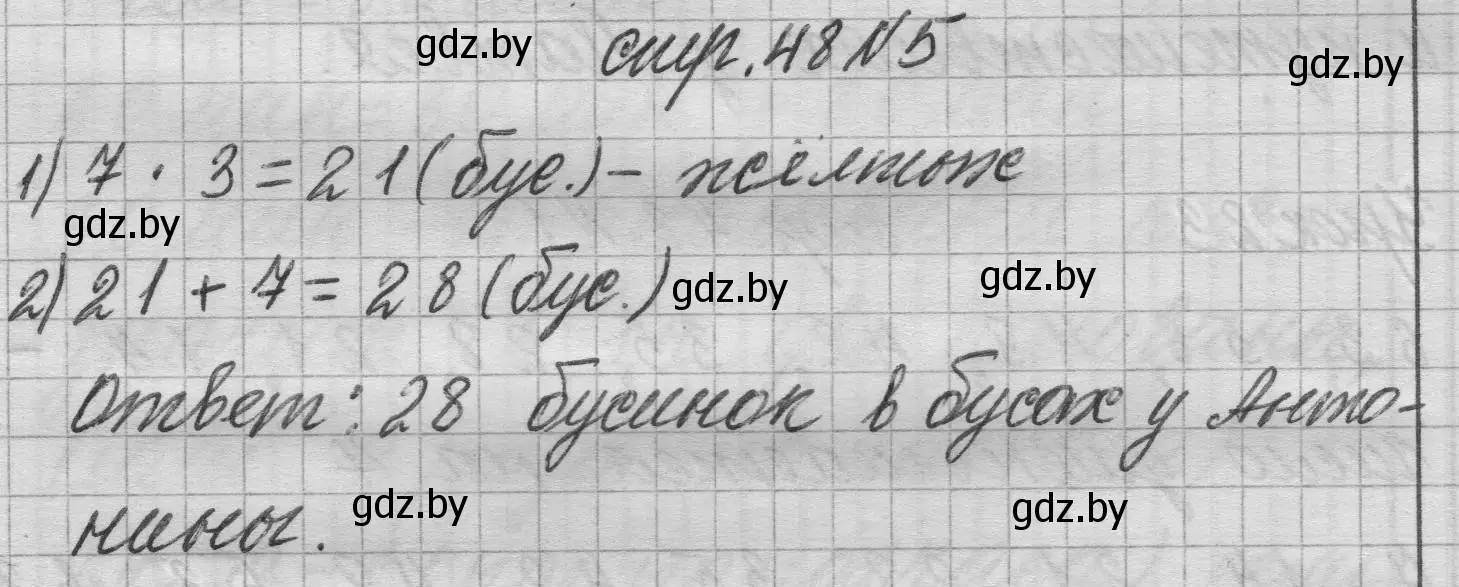 gdz.by стр. 48 №5 gdz.by
1) 7 · 3 = 21 (бус.) – жёлтых
gdz.by
2) 21 + 7 = 28 (бус.) gdz.by gdz.by
Ответ: 28 бусинок в бусах у Анто-
нины. gdz.by gdz.by